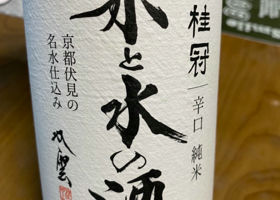 桂冠
辛口 純米
米と水の酒
京都伏見の
名水仕込み
双雲